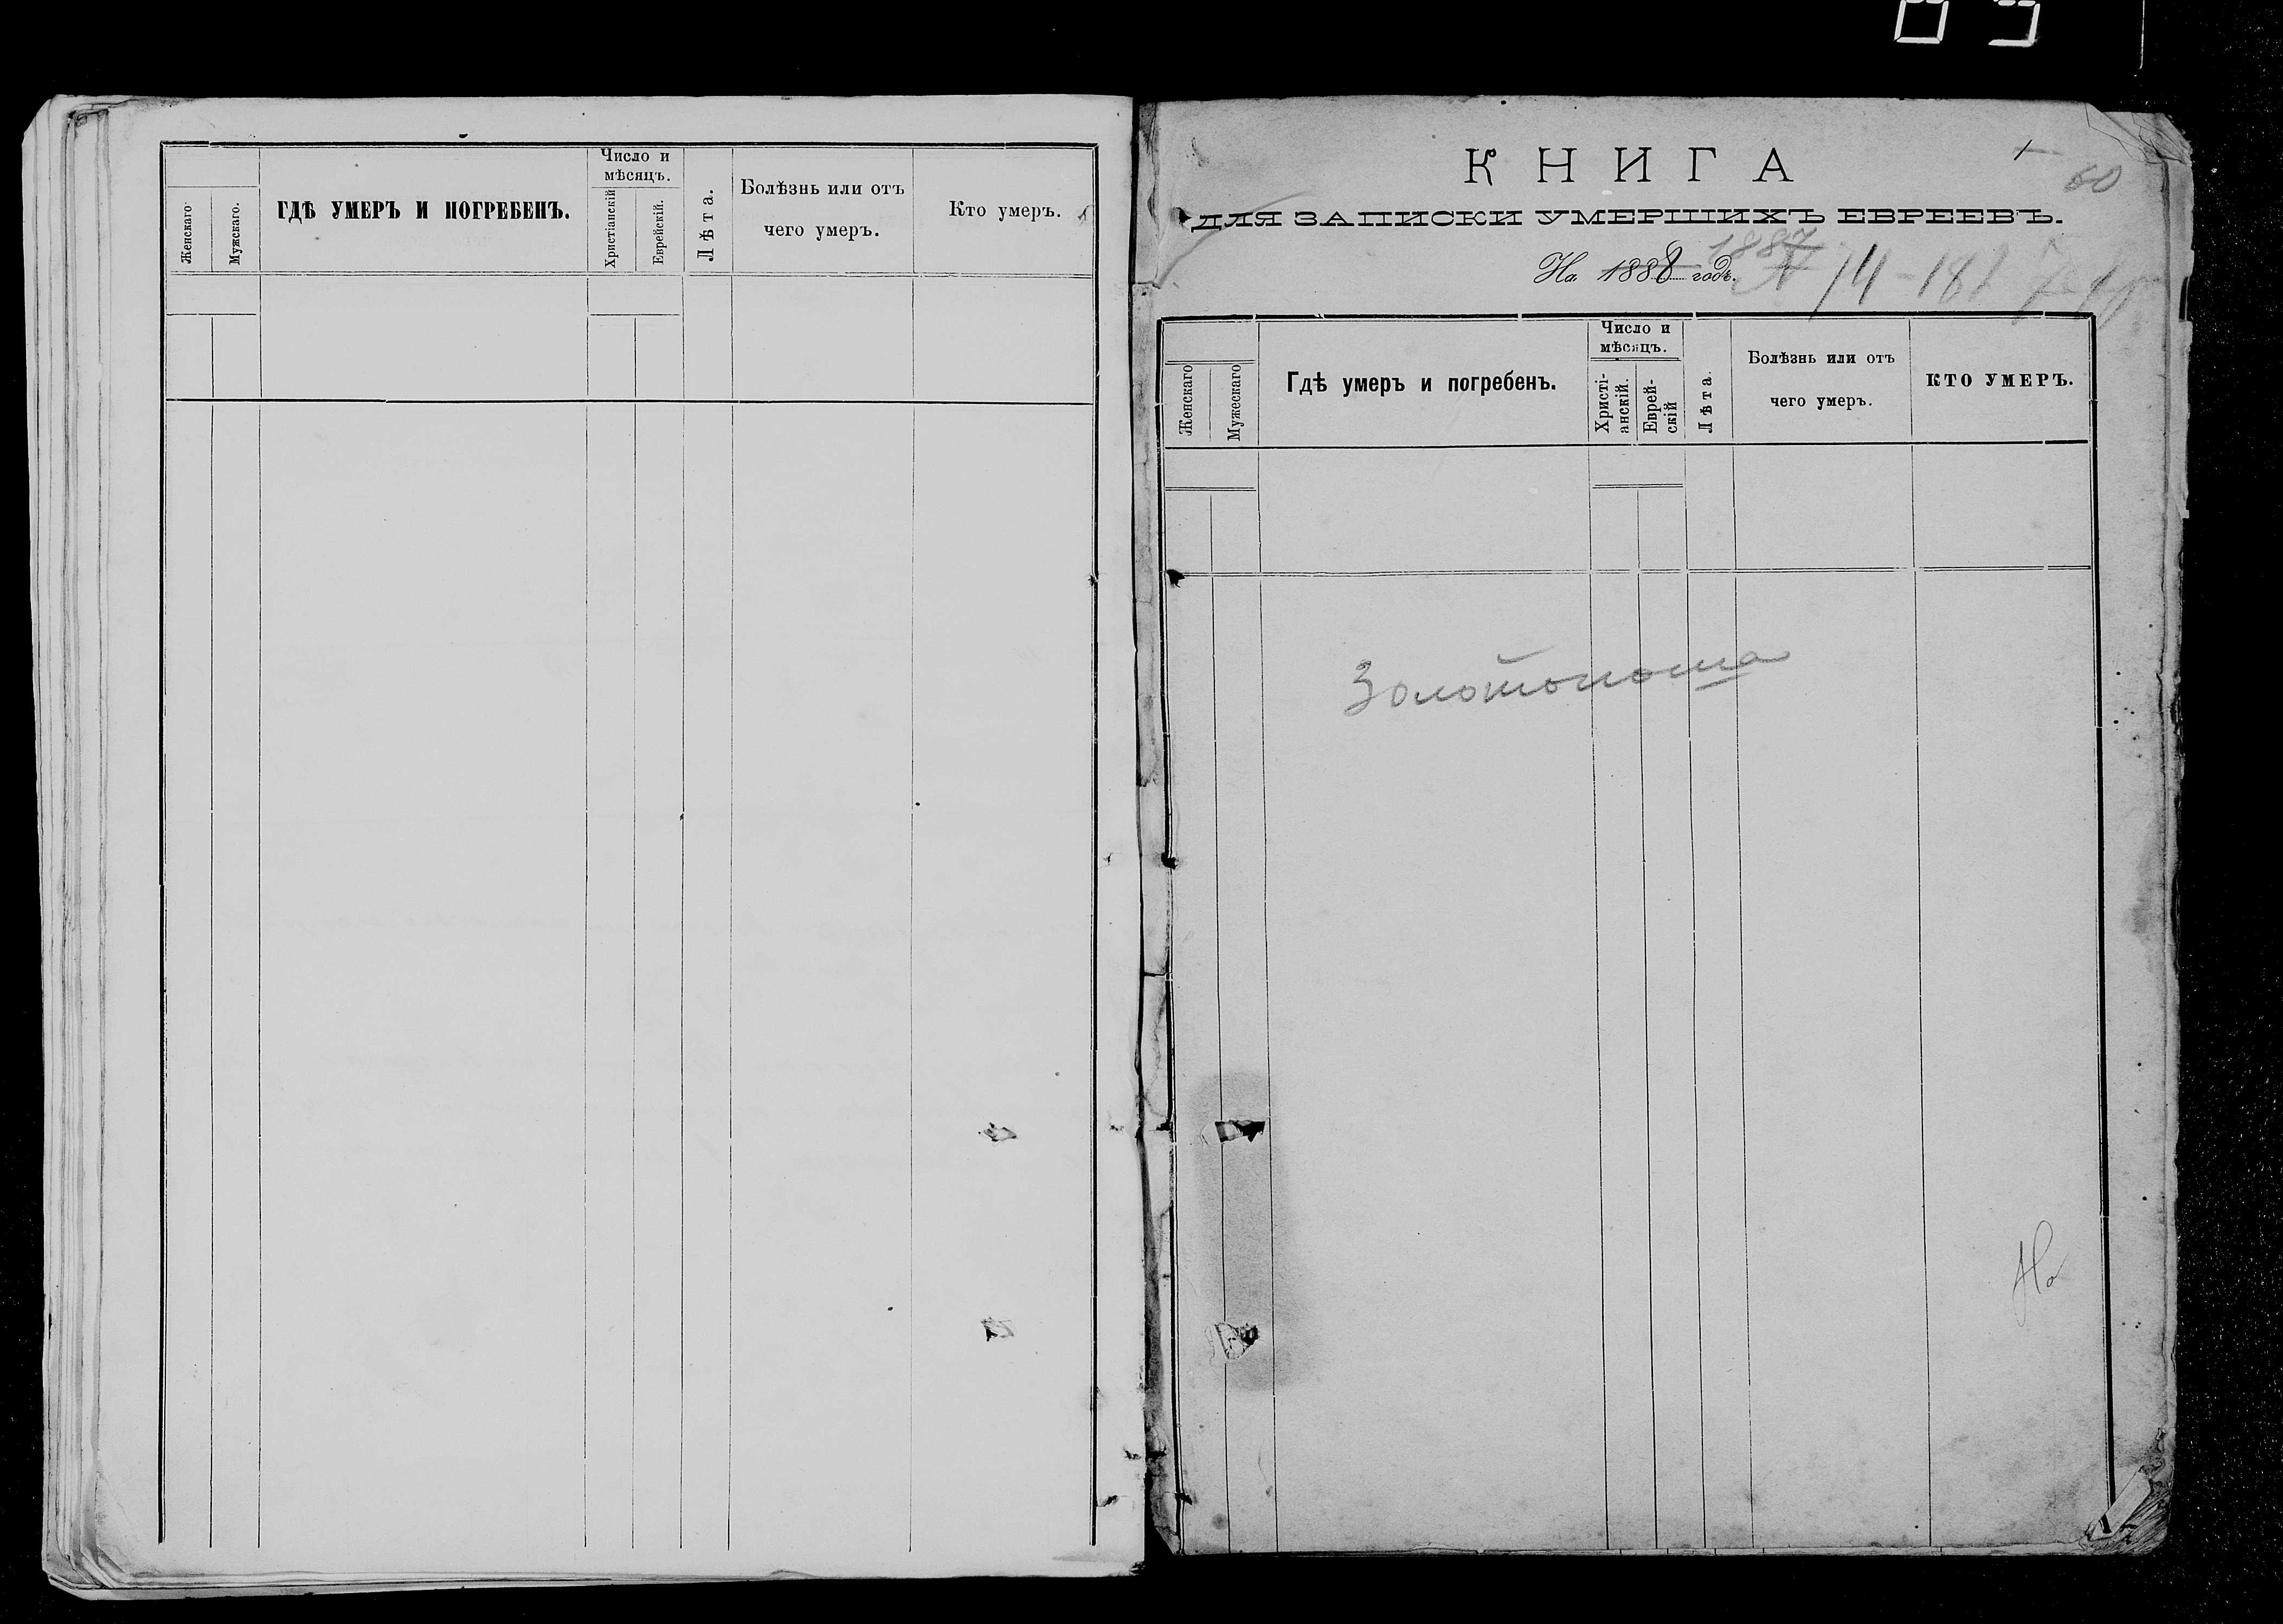 Женскаго
Мужскаго.
ГДѢ УМЕРЪ И ПОГРЕБЕНЪ.
Число и
мѣсяцъ.
Христіанскій
Еврейскій.
Лѣта.
Болѣзнь или отъ
чего умеръ.
Кто умеръ.
КНИГА
60
ДЛЯ ЗАПИСКИ УМЕРШИХЪ ЕВРЕЕВЪ.
1887
На 1888 годъ.
Женскаго
Мужескаго
Гдѣ умеръ и погребенъ.
Число и
мѣсяцъ.
Христі-
анскій.
Еврей-
скій
Лѣта.
Болѣзнь или отъ
чего умеръ.
КТО УМЕРЪ.
Золотоноша